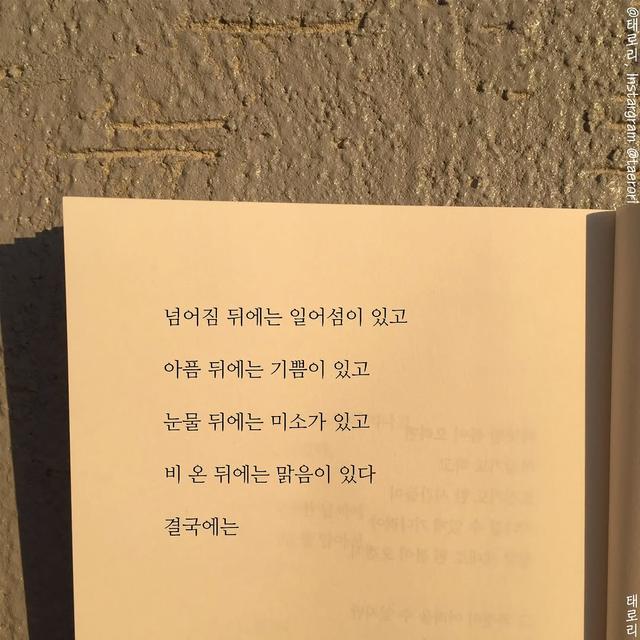 넘어짐 뒤에는 일어섬이 있고
아픔 뒤에는 기쁨이 있고
눈물 뒤에는 미소가 있고
비 온 뒤에는 맑음이 있다
결국에는
@태로리, instargram @taerori
태로리